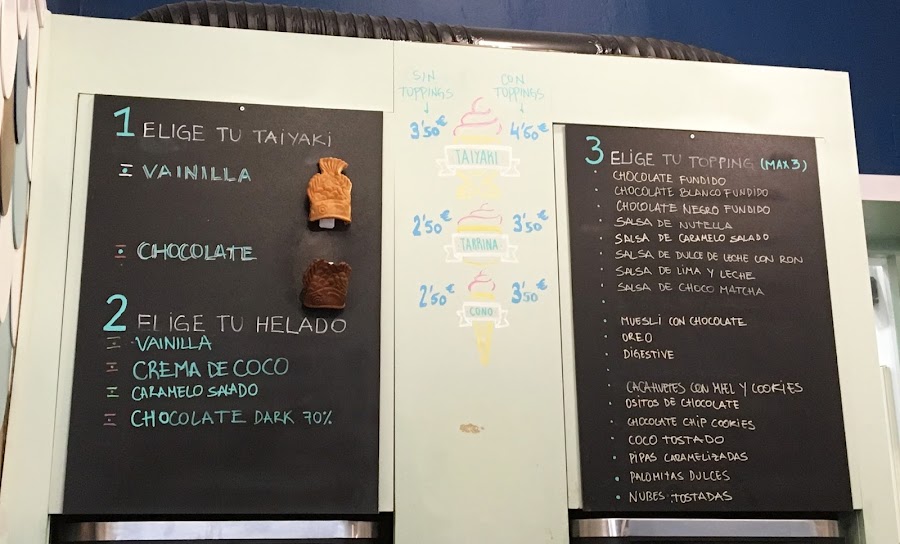 1 ELIGE TU TAIYAKI
VAINILLA
CHOCOLATE
2 ELIGE TU HELADO
VAINILLA
CREMA DE COCO
CARAMELO SALADO
CHOCOLATE DARK 70%
SIN TOPPINGS
CON TOPPINGS
3'50€ TAIYAKI 4'50€
2'50€ TARRINA 3'50€
2'50€ CONO 3'50€
3 ELIGE TU TOPPING (MAX 3)
CHOCOLATE FUNDIDO
CHOCOLATE BLANCO FUNDIDO
CHOCOLATE NEGRO FUNDIDO
SALSA DE NUTELLA
SALSA DE CARAMELO SALADO
SALSA DE DULCE DE LECHE CON RON
SALSA DE LIMA Y LECHE
SALSA DE CHOCO MATCHA
MUESLI CON CHOCOLATE
OREO
DIGESTIVE
CACAHUETES CON MIEL Y COOKIES
OSITOS DE CHOCOLATE
CHOCOLATE CHIP COOKIES
COCO TOSTADO
PIPAS CARAMELIZADAS
PALOMITAS DULCES
NUBES TOSTADAS